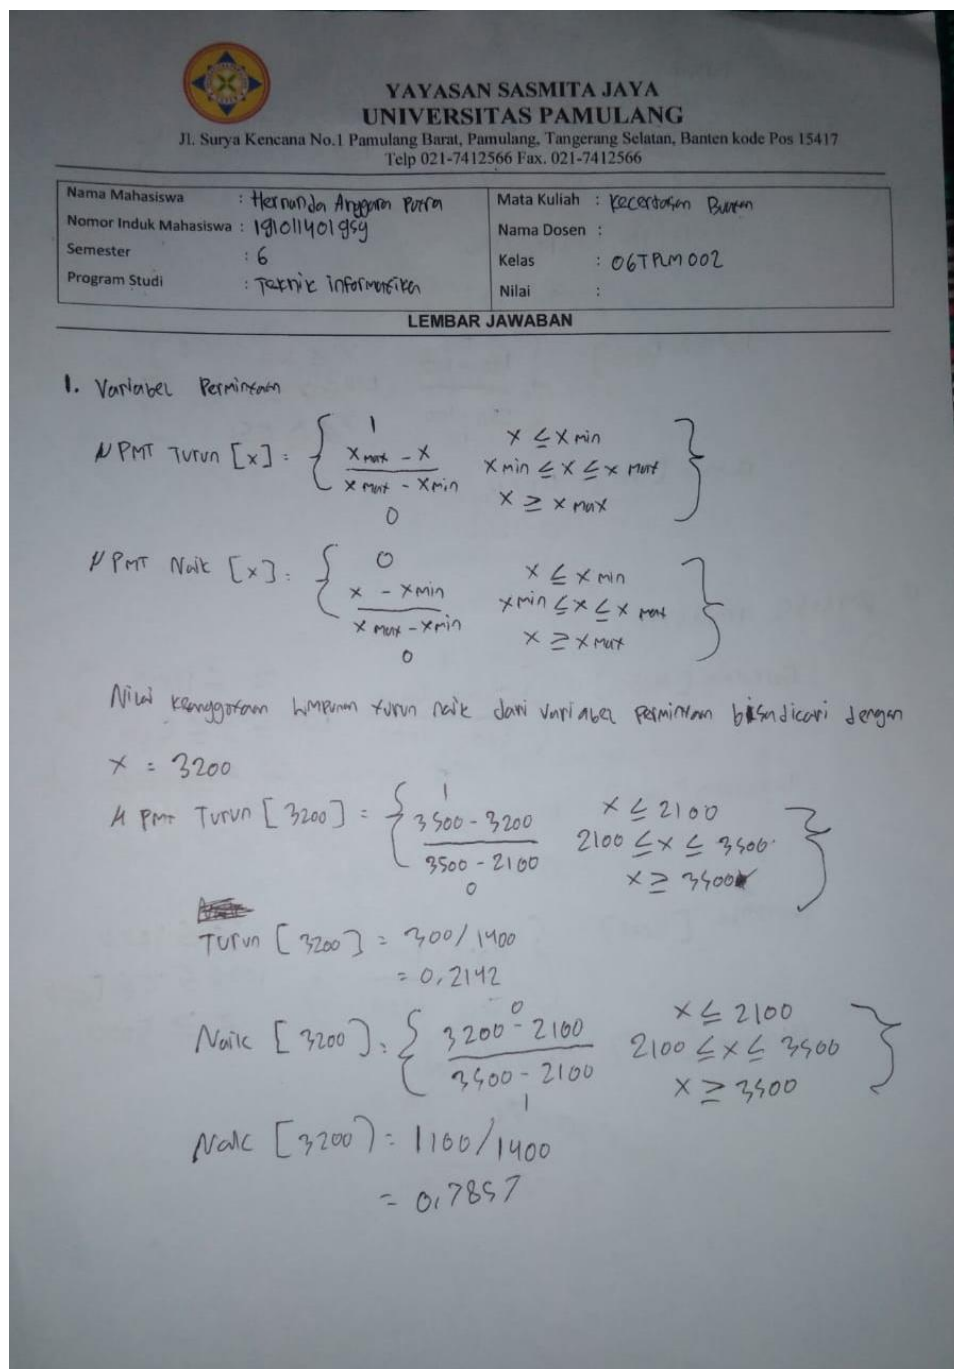 YAYASAN SASMITA JAYA
UNIVERSITAS PAMULANG
Jl. Surya Kencana No.1 Pamulang Barat, Pamulang, Tangerang Selatan, Banten kode Pos 15417
Telp 021-7412566 Fax. 021-7412566
Nama Mahasiswa : Hernanda Anggara Putra
Nomor Induk Mahasiswa : 191011401959
Semester : 6
Program Studi : Teknik informatika
Mata Kuliah : Kecerdasan Buatan
Nama Dosen :
Kelas : 06TPLM002
Nilai :
LEMBAR JAWABAN
1. Variabel Permintaan
μ PMT Turun [x] = { 1 x ≤ x min
x max - x / x max - x min x min ≤ x ≤ x max
0 x ≥ x max }
μ PMT Naik [x] = { 0 x ≤ x min
x - x min / x max - x min x min ≤ x ≤ x max
0 x ≥ x max }
Nilai keanggotaan himpunan turun naik dari variabel permintaan bisa dicari dengan
x = 3200
μ PMT Turun [3200] = { 1 x ≤ 2100
3500 - 3200 / 3500 - 2100 2100 ≤ x ≤ 3500
0 x ≥ 3500 }
Turun [3200] = 300/1400
= 0,2142
Naik [3200] = { 0 x ≤ 2100
3200 - 2100 / 3500 - 2100 2100 ≤ x ≤ 3500
1 x ≥ 3500 }
Naik [3200] = 1100/1400
= 0,7857